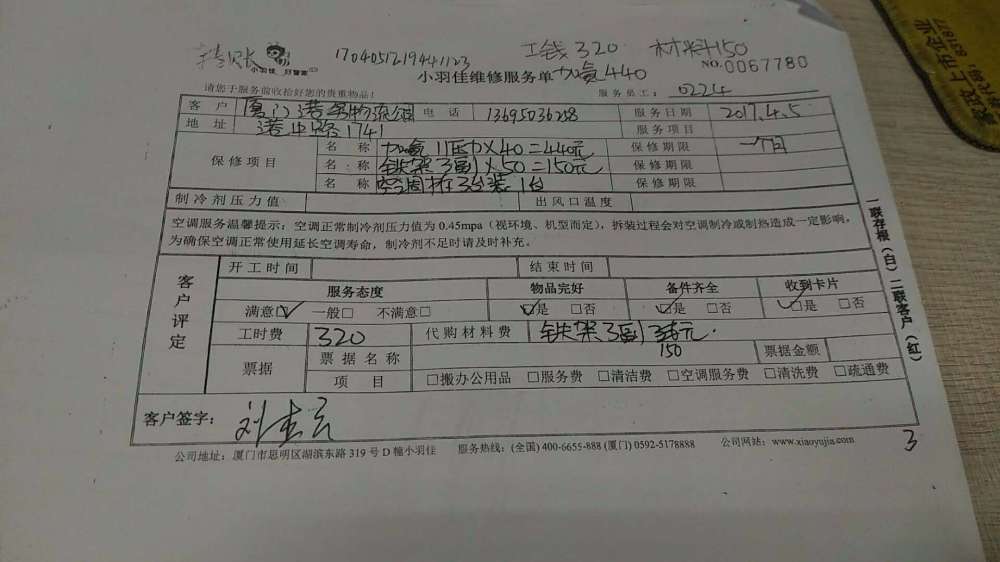 转账 小羽佳 170405121944123 工钱320 材料150
小羽佳维修服务单 加氨440 NO.0067780
请您于服务前收拾好您的贵重物品! 服务员工: 0224
客户 电话 13695036258 服务日期 2017.4.5
地址 港中路1741 服务项目
保修项目 名称 加氨11压力×40=440元 保修期限 一个月
名称 铁架3副×50=150元 保修期限
名称 空调拆3台装1台 保修期限
制冷剂压力值 出风口温度
空调服务温馨提示:空调正常制冷剂压力值为0.45mpa(视环境、机型而定),拆装过程会对空调制冷或制热造成一定影响,
为确保空调正常使用延长空调寿命,制冷剂不足时请及时补充。
客户评定 开工时间 结束时间
服务态度 物品完好 备件齐全 收到卡片
满意☑ 一般□ 不满意□ ☑是 □否 ☑是 □否 ☑是 □否
工时费 320 代购材料费 铁架3副 元
150
票据 票据名称 票据金额
项目 □搬办公用品 □服务费 □清洁费 □空调服务费 □清洗费 □疏通费
客户签字:
公司地址:厦门市思明区湖滨东路319号D幢小羽佳 服务热线:(全国)400-6655-888(厦门)0592-5178888 公司网站:www.xiaoyujia.com
3
一联存根(白)二联客户(红)
上市企业
831877